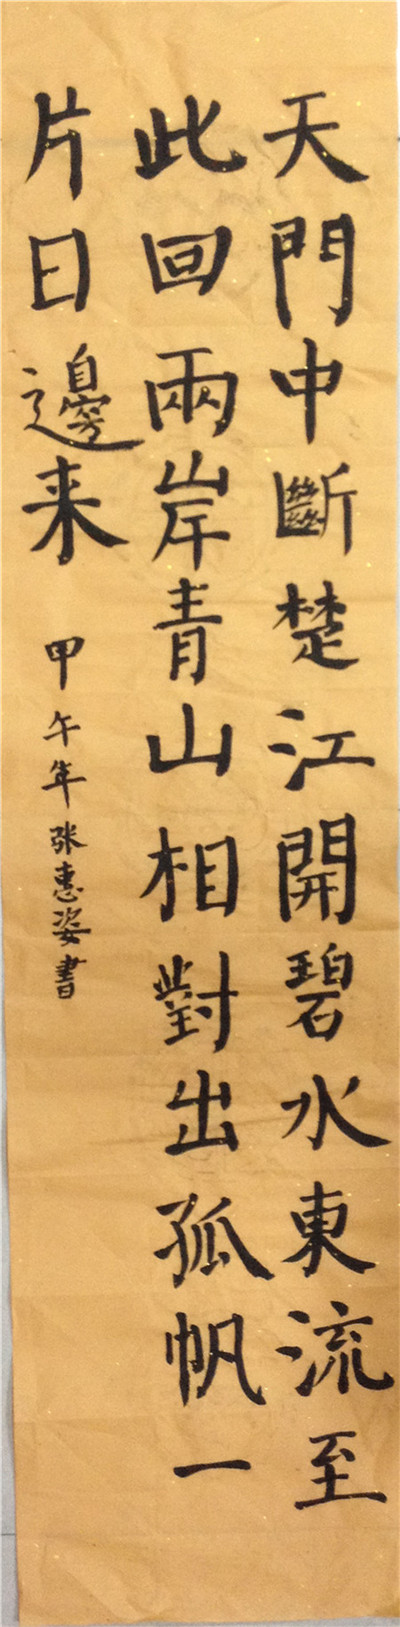 天門中斷楚江開碧水東流至
此回兩岸青山相對出孤帆一
片日邊来
甲午年张惠姿書